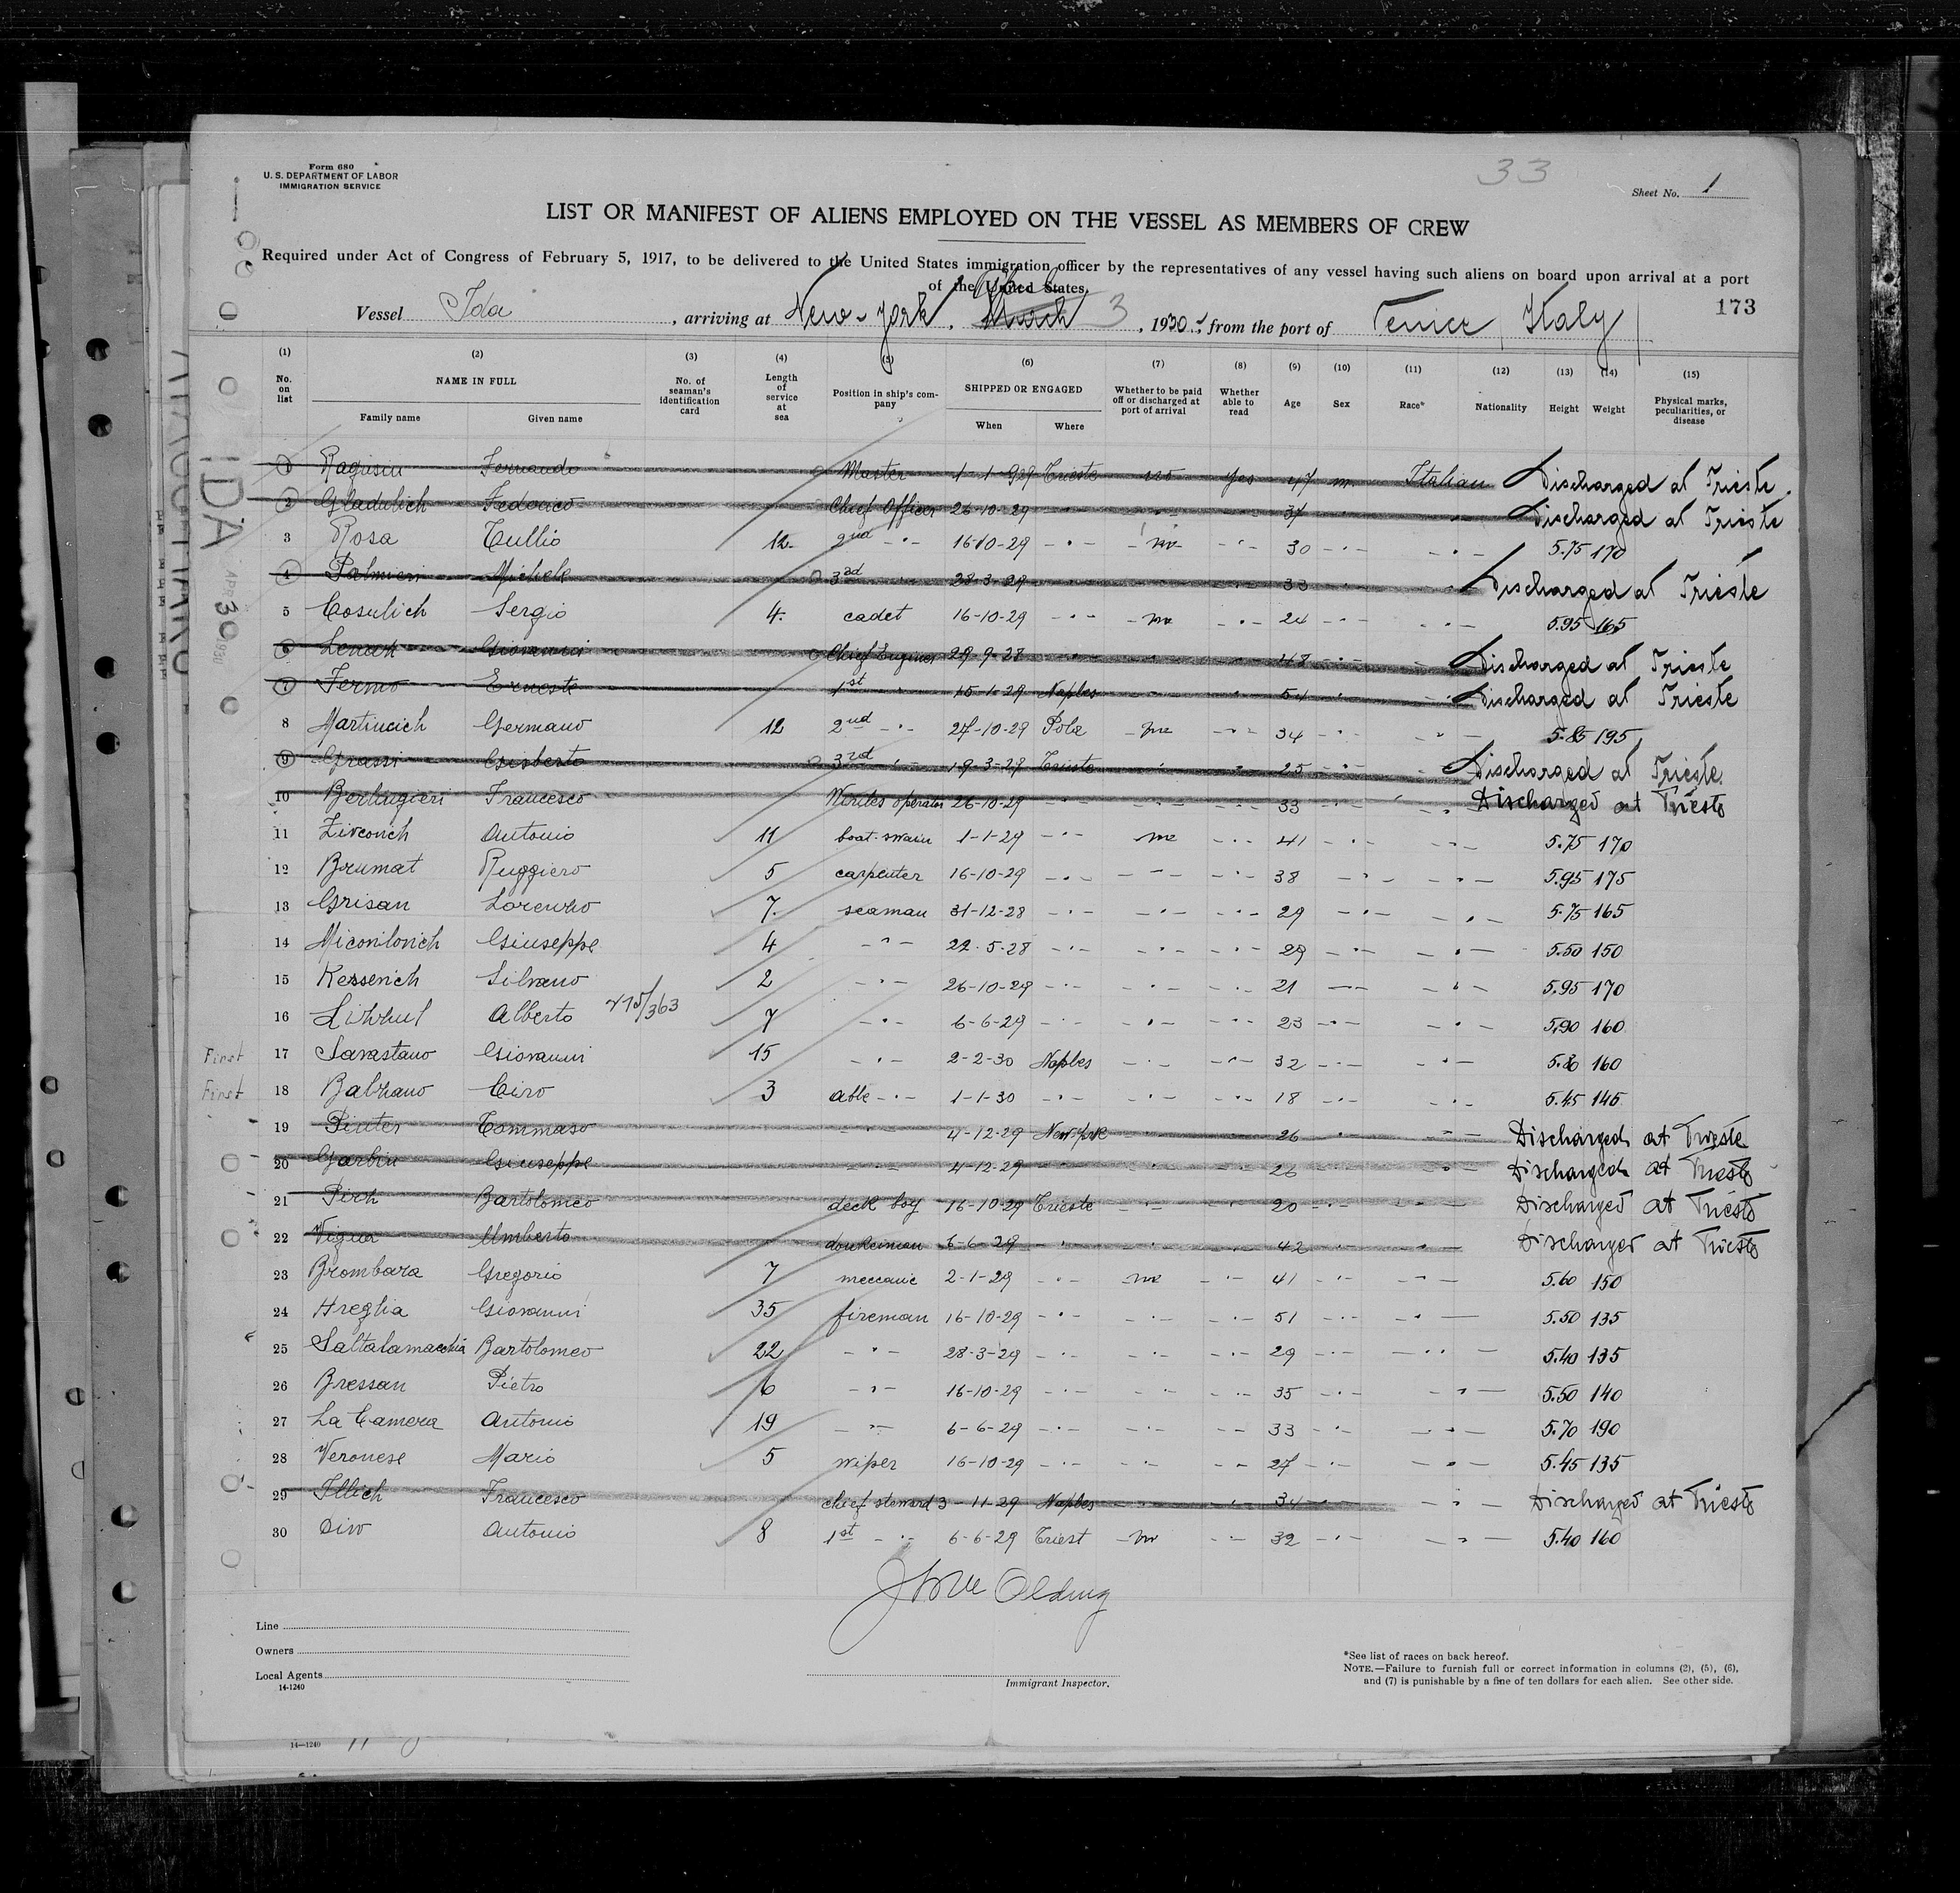 Form 680
U. S. DEPARTMENT OF LABOR
IMMIGRATION SERVICE
33
Sheet No. 1
LIST OR MANIFEST OF ALIENS EMPLOYED ON THE VESSEL AS MEMBERS OF CREW
Required under Act of Congress of February 5, 1917, to be delivered to the United States immigration officer by the representatives of any vessel having such aliens on board upon arrival at a port
of the United States.
Vessel Ida, arriving at New-York, March 3, 1930, from the port of Venice, Italy
173
IDA
APR 30 1930
(1) (2) (3) (4) (5) (6) (7) (8) (9) (10) (11) (12) (13) (14) (15)
No. on list NAME IN FULL No. of seaman's identification card Length of service at sea Position in ship's company SHIPPED OR ENGAGED Whether to be paid off or discharged at port of arrival Whether able to read Age Sex Race* Nationality Height Weight Physical marks, peculiarities, or disease
Family name Given name When Where
1 Ragusin Fernando Master 1-1-929 Trieste no yes 47 m Italian Discharged at Trieste.
2 Gladulich Federico Chief Officer 26-10-29 - " - 37 Discharged at Trieste
3 Rosa Tullio 12 2nd - " - 16-10-29 - " - no - " - 30 - " - - " - 5.75 170
4 Palmieri Michele 3rd 28-3-29 33 Discharged at Trieste
5 Cosulich Sergio 4 cadet 16-10-29 - " - no - " - 24 - " - - " - 5.95 165
6 Giovanni Chief Engineer 29-9-28 48 - " - Discharged at Trieste
7 Fermo Ernesto 1st 15-1-29 Naples 54 Discharged at Trieste
8 Martincich Germano 12 2nd - " - 27-10-29 Pola no - " - 34 - " - - " - 5.85 195
9 Grassi Gisberto 3rd - " - 19-3-29 Trieste 25 - " - Discharged at Trieste
10 Berlingieri Francesco Wirles operator 26-10-29 - " - 33 Discharged at Trieste
11 Zivcovich Antonio 11 boat-swain 1-1-29 - " - no - " - 41 - " - - " - 5.75 170
12 Brumat Ruggiero 5 carpenter 16-10-29 - " - - " - - " - 38 - " - - " - 5.95 175
13 Grisan Lorenzo 7 seaman 31-12-28 - " - - " - - " - 29 - " - - " - 5.75 165
14 Giuseppe 4 - " - 22-5-28 - " - - " - - " - 29 - " - - " - 5.50 150
15 Kesserich Silvano 2 - " - 26-10-29 - " - - " - - " - 21 - " - - " - 5.95 170
16 Alberto 7 - " - 6-6-29 - " - - " - - " - 23 - " - - " - 5.90 160
First 17 Savastano Giovanni 15 - " - 2-2-30 Naples - " - - " - 32 - " - - " - 5.80 160
First 18 Balzano Ciro 3 able - " - 1-1-30 - " - - " - - " - 18 - " - - " - 5.45 145
19 Pinter Tommaso - " - 4-12-29 New-York 26 - " - - " - Discharged at Trieste
20 Garbin Giuseppe - " - 4-12-29 - " - 26 - " - Discharged at Trieste
21 Pirh Bartolomeo deck boy 16-10-29 Trieste - " - - " - 20 - " - - " - Discharged at Trieste
22 Vigna Umberto donkeiman 6-6-29 - " - - " - 42 - " - - " - Discharged at Trieste
23 Brombara Gregorio 7 meccanic 2-1-29 - " - no - " - 41 - " - - " - 5.60 150
24 Hreglia Giovanni 35 fireman 16-10-29 - " - - " - - " - 51 - " - - " - 5.50 135
25 Saltalamacchia Bartolomeo 22 - " - 28-3-29 - " - - " - - " - 29 - " - - " - 5.40 135
26 Bressan Pietro 6 - " - 16-10-29 - " - - " - - " - 35 - " - - " - 5.50 140
27 La Camera Antonio 19 - " - 6-6-29 - " - - " - - " - 33 - " - - " - 5.70 190
28 Veronese Mario 5 wiper 16-10-29 - " - - " - - " - 27 - " - - " - 5.45 135
29 Illich Francesco chief steward 3-11-29 Naples - " - 34 - " - - " - Discharged at Trieste
30 Antonio 8 1st - " - 6-6-29 Triest no - " - 32 - " - - " - 5.40 160
Olding
Line
Owners
Local Agents
14-1240
Immigrant Inspector.
*See list of races on back hereof.
NOTE.—Failure to furnish full or correct information in columns (2), (5), (6),
and (7) is punishable by a fine of ten dollars for each alien. See other side.
14—1240